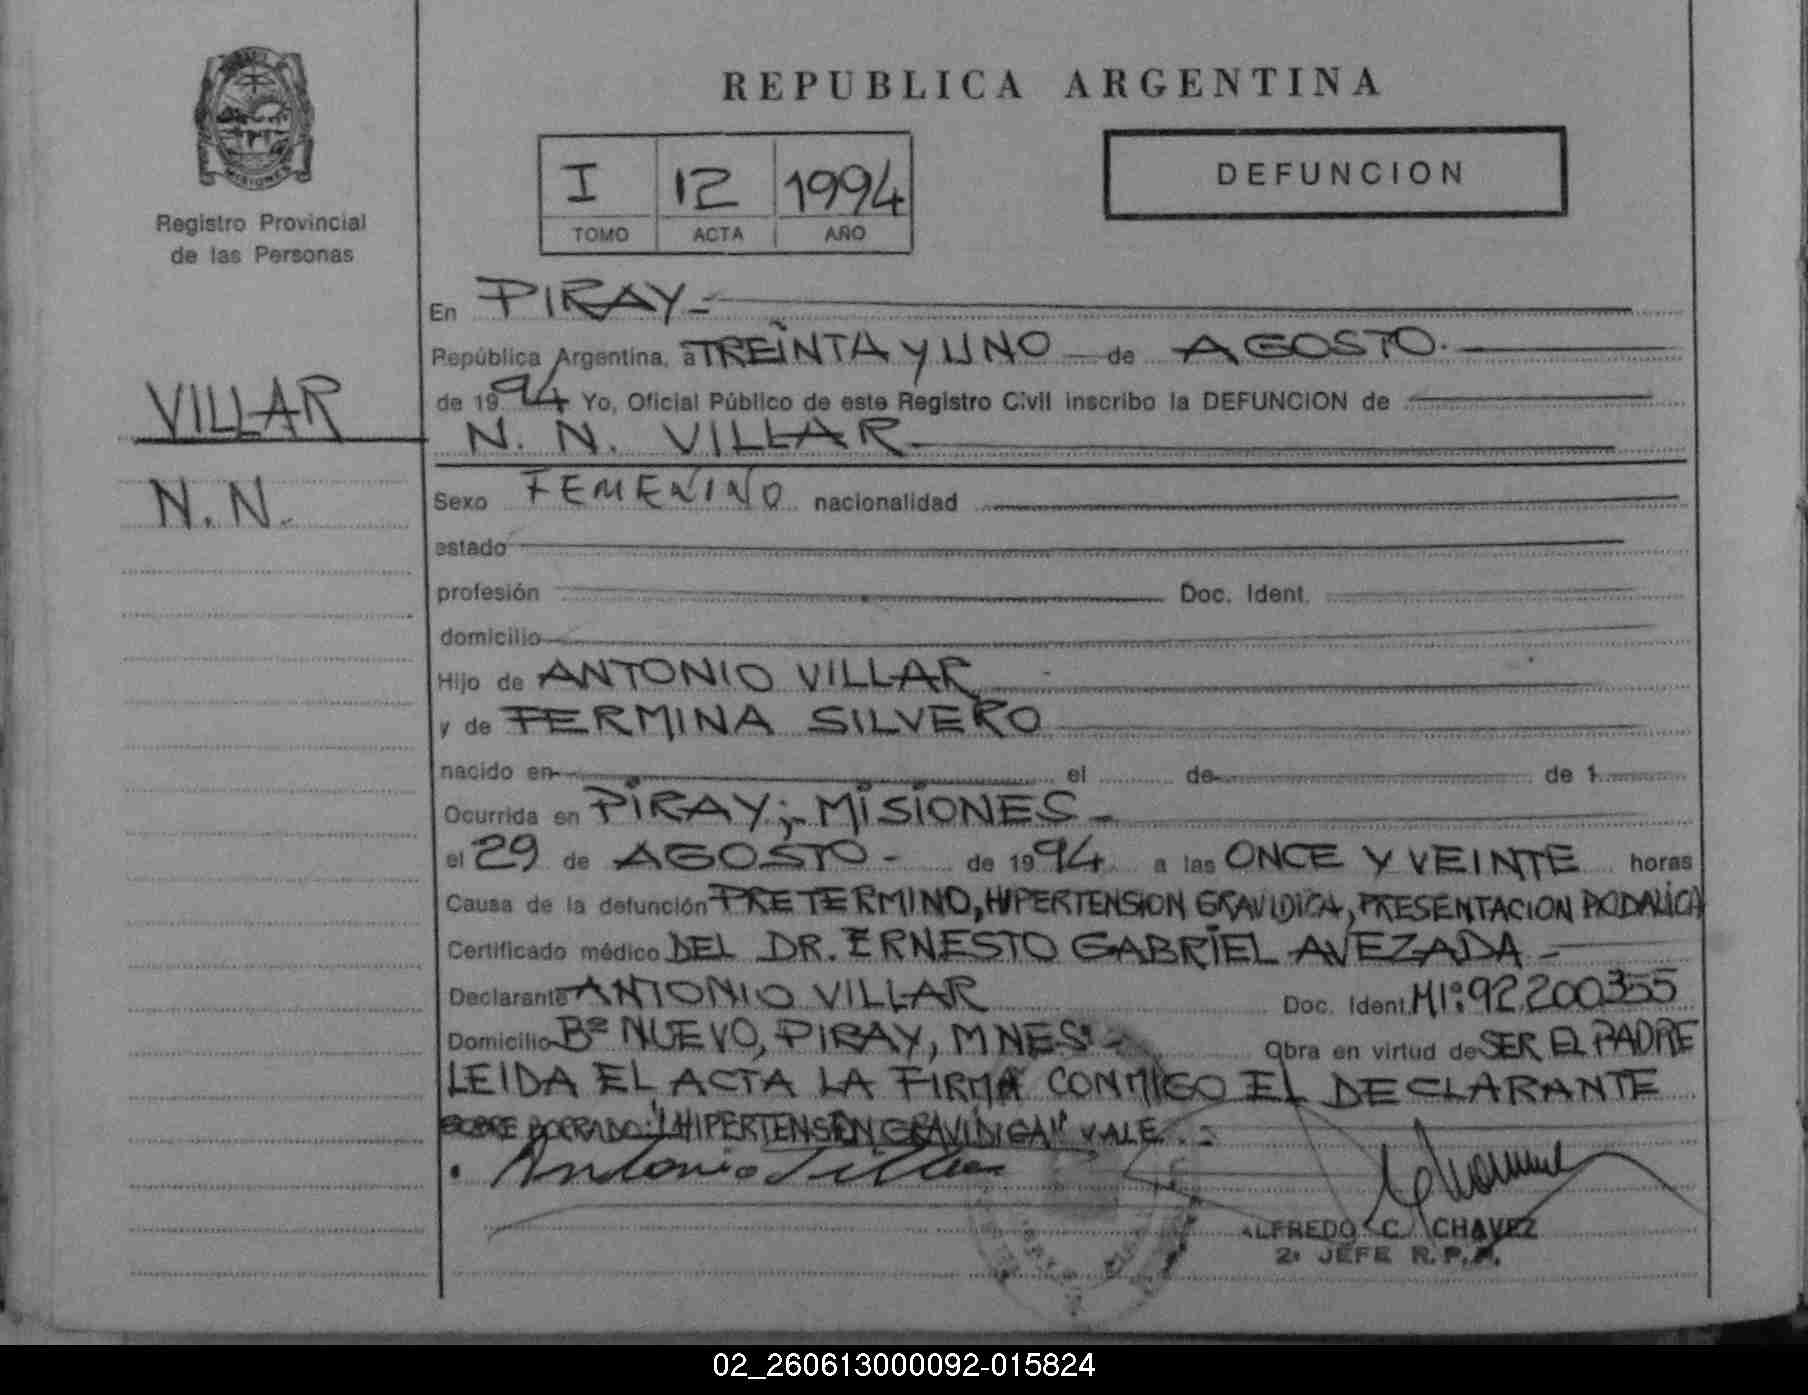 REPUBLICA ARGENTINA
MISIONES
Registro Provincial
de las Personas
I 12 1994
TOMO ACTA AÑO
DEFUNCION
VILLAR
N.N.
En PIRAY.-
República Argentina, a TREINTA Y UNO de AGOSTO.
de 1994 Yo, Oficial Público de este Registro Civil inscribo la DEFUNCION de
N. N. VILLAR
Sexo FEMENINO nacionalidad
estado
profesión Doc. Ident.
domicilio
Hijo de ANTONIO VILLAR
y de FERMINA SILVERO
nacido en el de de 1
Ocurrida en PIRAY;- MISIONES -
el 29 de AGOSTO - de 1994 a las ONCE Y VEINTE horas
Causa de la defunción PRETERMINO, HIPERTENSION GRAVIDICA, PRESENTACION PODALICA
Certificado médico DEL DR. ERNESTO GABRIEL AVEZADA -
Declarante ANTONIO VILLAR Doc. Ident. MI: 92.200.355
Domicilio Bº NUEVO, PIRAY, MNES - Obra en virtud de SER EL PADRE
LEIDA EL ACTA LA FIRMA CONMIGO EL DECLARANTE
SOBRE BORRADO: "HIPERTENSION GRAVIDICA" VALE.-
Antonio Villar
ALFREDO C. CHAVEZ
2º JEFE R.P.P.
02_260613000092-015824